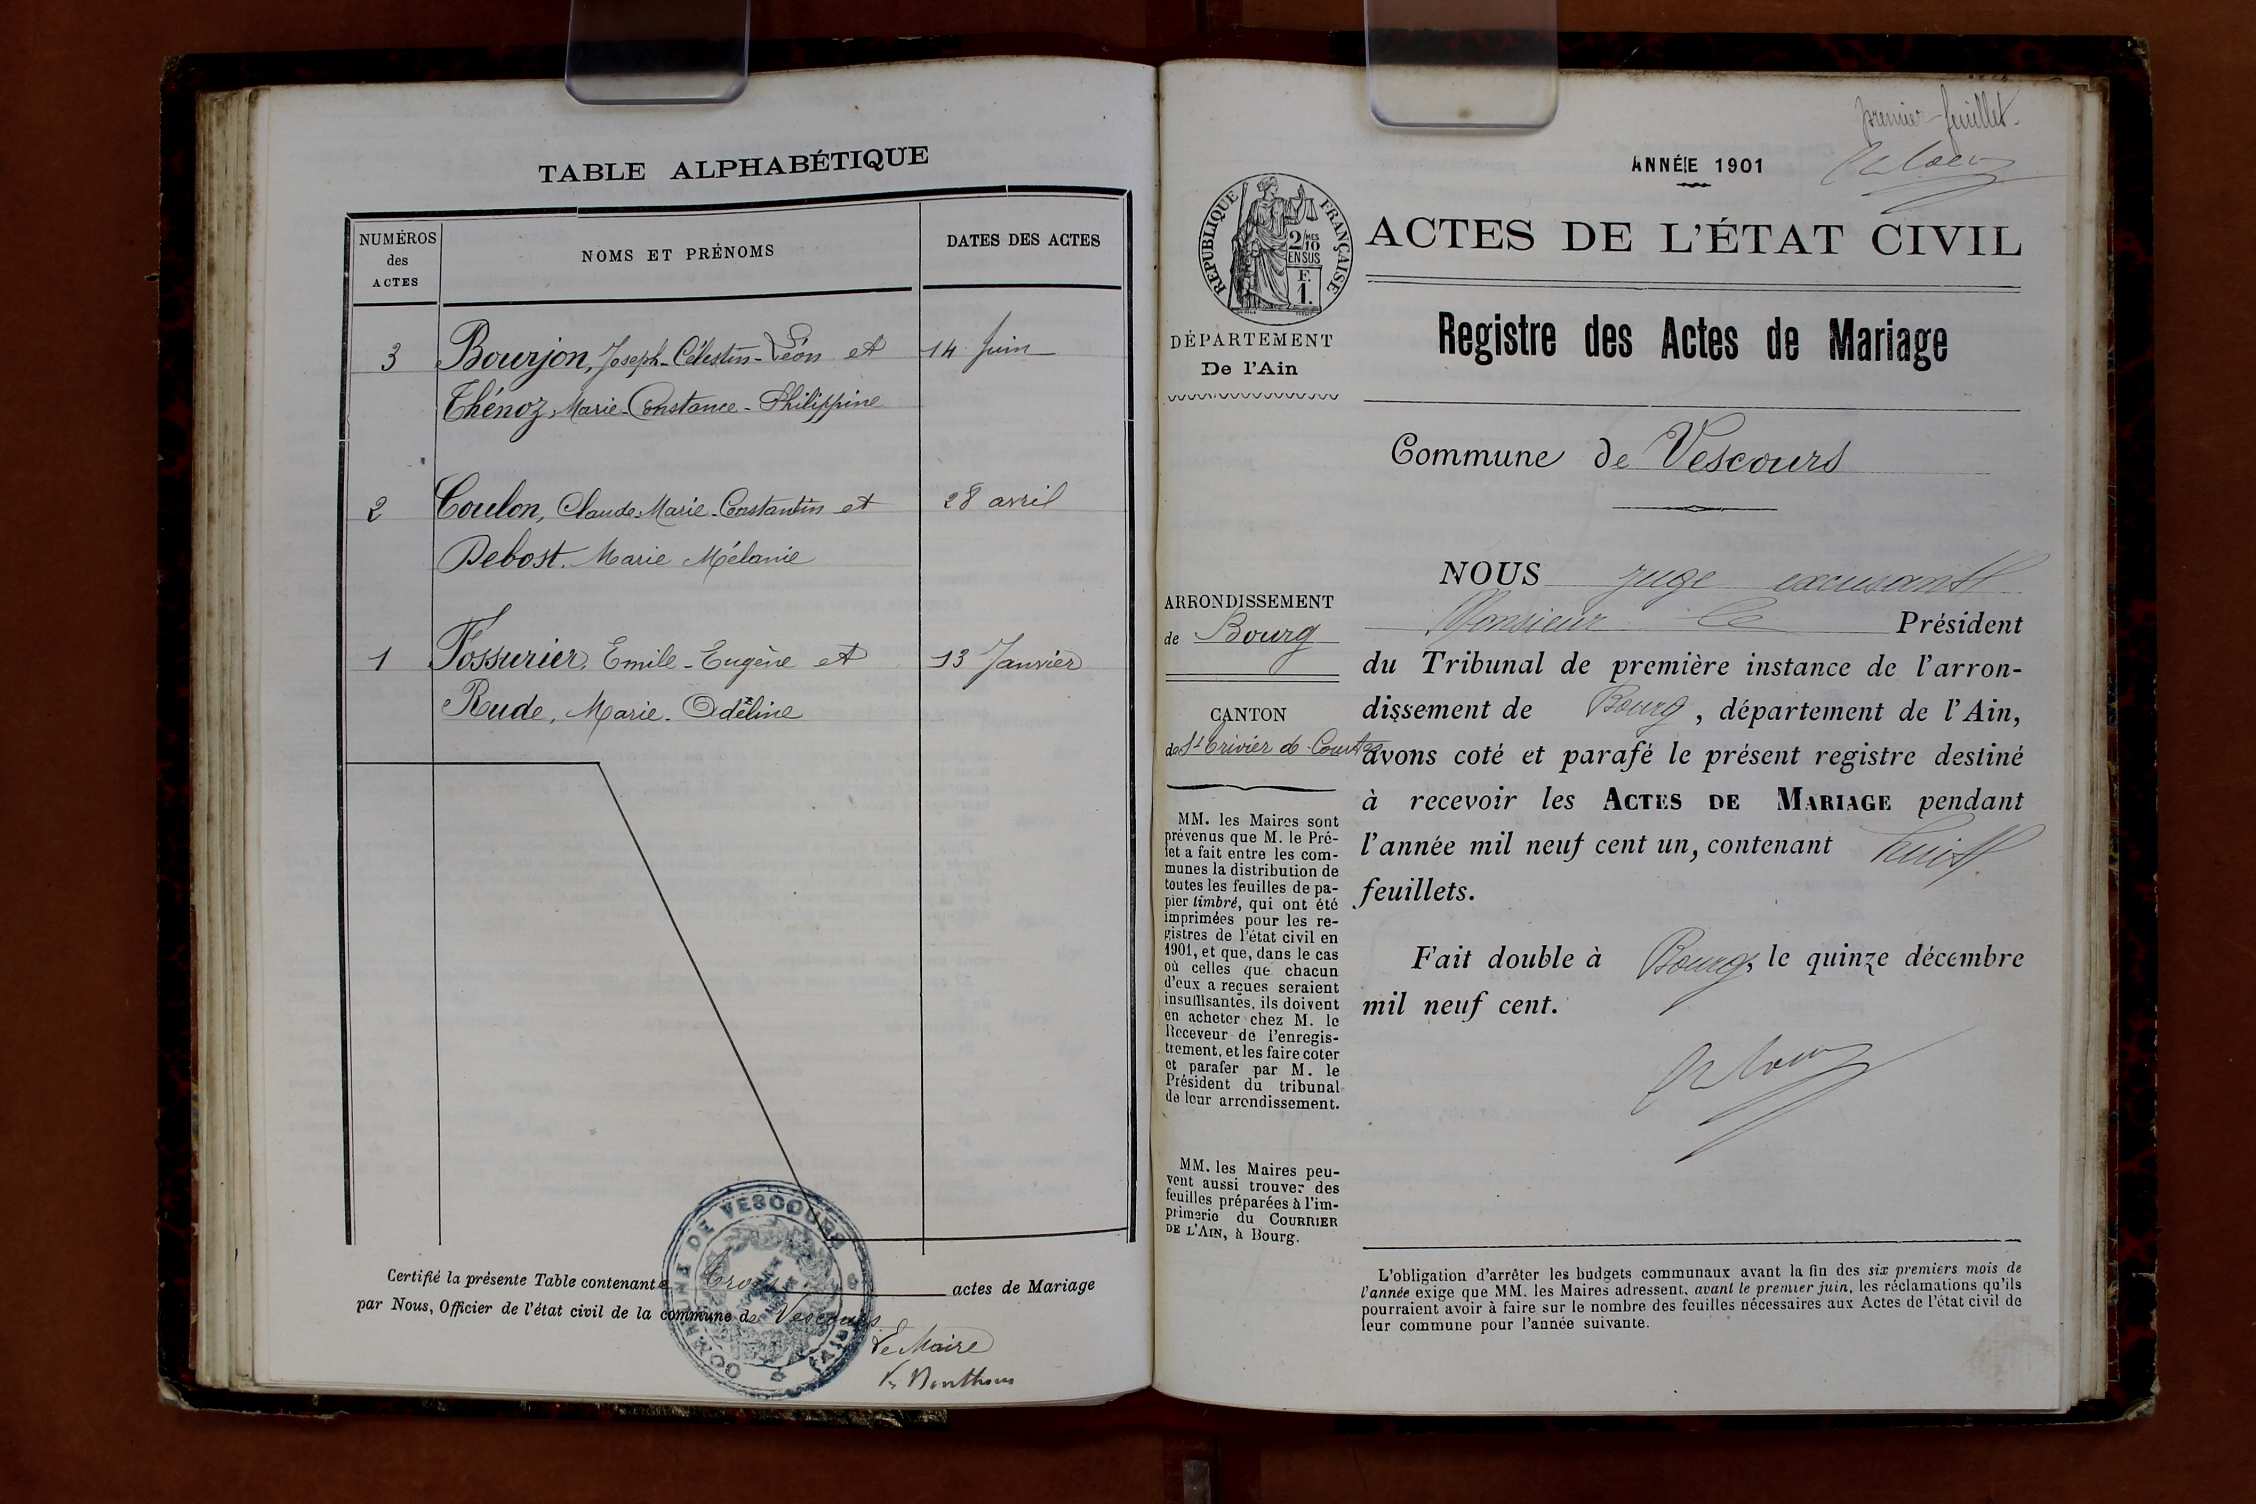 TABLE ALPHABÉTIQUE
NUMÉROS
des
ACTES
NOMS ET PRÉNOMS
DATES DES ACTES
3 Bourjon, Joseph-Célestin-Léon et 14 Juin
Thénoz, Marie-Constance-Philippine
2 Coulon, Claude-Marie-Constantin et 28 avril
Debost. Marie Mélanie
1 Fossurier, Emile-Eugène et 13 Janvier
Rude, Marie-Odéline
Certifié la présente Table contenant trois actes de Mariage
par Nous, Officier de l'état civil de la commune de Vescours
COMMUNE DE VESCOURS (AIN)
Le Maire
premier feuillet
ANNÉE 1901
RÉPUBLIQUE FRANÇAISE
2/10 MES
EN SUS
F.
1.
ACTES DE L'ÉTAT CIVIL
DÉPARTEMENT
De l'Ain
Registre des Actes de Mariage
Commune de Vescours
ARRONDISSEMENT
de Bourg
CANTON
de St Trivier de Courtes
MM. les Maires sont
prévenus que M. le Pré-
fet a fait entre les com-
munes la distribution de
toutes les feuilles de pa-
pier timbré, qui ont été
imprimées pour les re-
gistres de l'état civil en
1901, et que, dans le cas
où celles que chacun
d'eux a reçues seraient
insuffisantes, ils doivent
en acheter chez M. le
Receveur de l'enregis-
trement, et les faire coter
et parafer par M. le
Président du tribunal
de leur arrondissement.
MM. les Maires peu-
vent aussi trouver des
feuilles préparées à l'im-
primerie du COURRIER
DE L'AIN, à Bourg.
NOUS juge excusant
Monsieur le Président
du Tribunal de première instance de l'arron-
dissement de Bourg, département de l'Ain,
avons coté et parafé le présent registre destiné
à recevoir les ACTES DE MARIAGE pendant
l'année mil neuf cent un, contenant huit
feuillets.
Fait double à Bourg, le quinze décembre
mil neuf cent.
L'obligation d'arrêter les budgets communaux avant la fin des six premiers mois de
l'année exige que MM. les Maires adressent, avant le premier juin, les réclamations qu'ils
pourraient avoir à faire sur le nombre des feuilles nécessaires aux Actes de l'état civil de
leur commune pour l'année suivante.